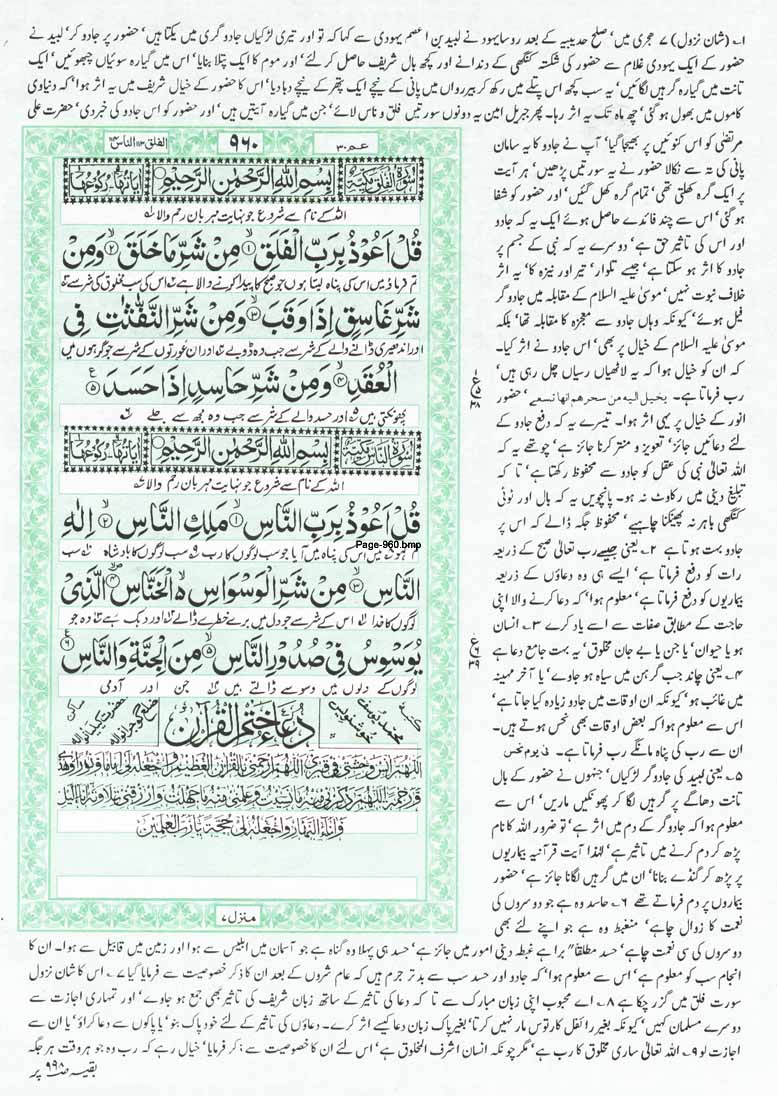 ۱۔ (شان نزول) ۷ ہجری میں‘ صلح حدیبیہ کے بعد روسا یہود نے لبید بن اعصم یہودی سے کہا کہ تو اور تیری لڑکیاں جادوگری میں یکتا ہیں‘ حضور پر جادو کر‘ لبید نے
حضور کے ایک یہودی غلام سے حضور کی شکستہ کنگھی کے دندانے اور کچھ بال شریف حاصل کر لئے‘ اور موم کا ایک پتلا بنایا‘ اس میں گیارہ سوئیاں چبھوئیں‘ ایک
تانت میں گیارہ گرہیں لگائیں‘ یہ سب کچھ اس پتلے میں رکھ کر بیر رواں میں پانی کے نیچے ایک پتھر کے نیچے دبا دیا‘ اس کا حضور کے خیال شریف میں یہ اثر ہوا‘ کہ دنیاوی
کاموں میں بھول ہو گئی‘ چھ ماہ تک یہ اثر رہا۔ پھر جبریل امین یہ دونوں سورتیں فلق و ناس لائے‘ جن میں گیارہ آیتیں ہیں‘ اور حضور کو اس جادو کی خبر دی‘ حضرت علی
مرتضٰی کو اس کنوئیں پر بھیجا گیا‘ آپ نے جادو کا یہ سامان
پانی کی تہ سے نکالا حضور نے یہ سورتیں پڑھیں‘ ہر آیت
پر ایک گرہ کھلتی تھی‘ تمام گرہ کھل گئیں‘ اور حضور کو شفا
ہو گئی‘ اس سے چند فائدے حاصل ہوئے ایک یہ کہ جادو
اور اس کی تاثیر حق ہے‘ دوسرے یہ کہ نبی کے جسم پر
جادو کا اثر ہو سکتا ہے‘ جیسے تلوار‘ تیر اور نیزہ کا‘ یہ اثر
خلاف نبوت نہیں‘ موسیٰ علیہ السلام کے مقابلہ میں جادوگر
فیل ہوئے‘ کیونکہ وہاں جادو سے معجزہ کا مقابلہ تھا‘ بلکہ
موسیٰ علیہ السلام کے خیال پر بھی‘ اس جادو نے اثر کیا۔
کہ ان کو خیال ہوا کہ یہ لاٹھیاں رسیاں چل رہی ہیں‘
رب فرماتا ہے۔ یخیل الیه من سحرهم انها تسعے‘ حضور
انور کے خیال پر یہی اثر ہوا۔ تیسرے یہ کہ دفع جادو کے
لئے دعائیں جائز‘ تعویذ و منتر کرنا جائز ہے‘ چوتھے یہ کہ
اللہ تعالیٰ نبی کی عقل کو جادو سے محفوظ رکھتا ہے‘ تا کہ
تبلیغ دینی میں رکاوٹ نہ ہو۔ پانچویں یہ کہ بال اور ٹوٹی
کنگھی باہر نہ پھینکنا چاہیے‘ محفوظ جگہ ڈالے کہ اس پر
جادو بہت ہوتا ہے ۲۔ یعنی جیسے رب تعالیٰ صبح کے ذریعہ
رات کو دفع فرماتا ہے‘ ایسے ہی وہ دعاؤں کے ذریعہ
بیماریوں کو دفع فرماتا ہے‘ معلوم ہوا‘ کہ دعا کرنے والا اپنی
حاجت کے مطابق صفات سے اسے یاد کرے ۳۔ انسان
ہو یا حیوان‘ یا جن یا بے جان مخلوق‘ یہ بہت جامع دعا ہے
۴۔ یعنی چاند جب گرہن میں سیاہ ہو جاوے‘ یا آخر مہینہ
میں غائب ہو‘ کیونکہ ان اوقات میں جادو زیادہ کیا جاتا ہے‘
اس سے معلوم ہوا کہ بعض اوقات بھی نحس ہوتے ہیں۔
ان سے رب کی پناہ مانگے رب فرماتا ہے۔ فی یوم نحس
۵۔ یعنی لبید کی جادوگر لڑکیاں‘ جنہوں نے حضور کے بال
تانت دھاگے پر گرہیں لگا کر پھونکیں ماریں‘ اس سے
معلوم ہوا کہ جادوگر کے دم میں اثر ہے‘ تو ضرور اللہ کا نام
پڑھ کر دم کرنے میں تاثیر ہے‘ لہٰذا آیت قرآنیہ بیماریوں
پر پڑھ کر گنڈے بنانا‘ ان میں گرہیں لگانا جائز ہے‘ حضور
بیماروں پر دم فرماتے تھے ۶۔ حاسد وہ ہے جو دوسروں کی
نعمت کا زوال چاہے‘ منغبط وہ ہے جو اپنے لئے بھی
الفلق ۱۱۳ الناس ۱۱۴
۹۶۰
عم ۳۰
سُوْرَةُ الْفَلَقِ مَكِّيَّةٌ بِسْمِ اللّٰهِ الرَّحْمٰنِ الرَّحِيْمِ اٰيَاتُهَا رُكُوْعُهَا
اللہ کے نام سے شروع جو نہایت مہربان رحم والا
قُلْ اَعُوْذُ بِرَبِّ الْفَلَقِ ۱ مِنْ شَرِّ مَا خَلَقَ ۲ وَمِنْ
تم فرماؤ میں اس کی پناہ لیتا ہوں جو صبح کا پیدا کرنے والا ہے اس کی سب مخلوق کی شر سے
شَرِّ غَاسِقٍ اِذَا وَقَبَ ۳ وَمِنْ شَرِّ النَّفّٰثٰتِ فِي
اور اندھیری ڈالنے والے کے شر سے جب وہ ڈوبے اور ان عورتوں کے شر سے جو گرہوں میں
الْعُقَدِ ۴ وَمِنْ شَرِّ حَاسِدٍ اِذَا حَسَدَ ۵
پھونکتی ہیں اور حسد والے کے شر سے جب وہ مجھ سے جلے
سُوْرَةُ النَّاسِ مَكِّيَّةٌ بِسْمِ اللّٰهِ الرَّحْمٰنِ الرَّحِيْمِ اٰيَاتُهَا رُكُوْعُهَا
اللہ کے نام سے شروع جو نہایت مہربان رحم والا
قُلْ اَعُوْذُ بِرَبِّ النَّاسِ ۱ مَلِكِ النَّاسِ ۲ اِلٰهِ
Page-960.bmp
اس کی پناہ میں آیا جو سب لوگوں کا رب سب لوگوں کا بادشاہ سب
النَّاسِ ۳ مِنْ شَرِّ الْوَسْوَاسِ الْخَنَّاسِ ۴ الَّذِيْ
لوگوں کا خدا اس کے شر سے جو دل میں برے خطرے ڈالے اور دبک رہے وہ جو
يُوَسْوِسُ فِيْ صُدُوْرِ النَّاسِ ۵ مِنَ الْجِنَّةِ وَالنَّاسِ ۶
لوگوں کے دلوں میں وسوسے ڈالتے ہیں جن اور آدمی
دُعَاءُ خَتْمِ الْقُرْاٰنِ
اَللّٰهُمَّ اٰنِسْ وَحْشَتِيْ فِيْ قَبْرِيْ اَللّٰهُمَّ ارْحَمْنِيْ بِالْقُرْاٰنِ الْعَظِيْمِ وَاجْعَلْهُ لِيْ اِمَامًا وَّنُوْرًا وَّهُدًى
وَّرَحْمَةً اَللّٰهُمَّ ذَكِّرْنِيْ مِنْهُ مَا نَسِيْتُ وَعَلِّمْنِيْ مِنْهُ مَا جَهِلْتُ وَارْزُقْنِيْ تِلَاوَتَهٗ اٰنَاءَ اللَّيْلِ
وَاٰنَاءَ النَّهَارِ وَاجْعَلْهُ لِيْ حُجَّةً يَّا رَبَّ الْعٰلَمِيْنَ
منزل ۷
دوسروں کی سی نعمت چاہے‘ حسد مطلقا" برا ہے غبطہ دینی امور میں جائز ہے‘ حسد ہی پہلا وہ گناہ ہے جو آسمان میں ابلیس سے ہوا اور زمین میں قابیل سے ہوا۔ ان کا
انجام سب کو معلوم ہے‘ اس سے معلوم ہوا‘ کہ جادو اور حسد سب سے بدتر جرم ہیں کہ عام شروں کے بعد ان کا ذکر خصوصیت سے فرمایا گیا ۷۔ اس کا شان نزول
سورت فلق میں گزر چکا ہے ۸۔ اے محبوب اپنی زبان مبارک سے تا کہ دعا کی تاثیر کے ساتھ زبان شریف کی تاثیر بھی جمع ہو جاوے‘ اور تمہاری اجازت سے
دوسرے مسلمان کہیں‘ کیونکہ بغیر رائفل کارتوس مار نہیں کرتا‘ بغیر پاک زبان دعا کیسے اثر کرے۔ دعاؤں کی تاثیر کے لئے خود پاک بنو‘ یا پاکوں سے دعا کراؤ‘ یا ان سے
اجازت لو ۹۔ اللہ تعالیٰ ساری مخلوق کا رب ہے‘ مگر چونکہ انسان اشرف المخلوق ہے‘ اس لئے ان کا خصوصیت سے ذکر فرمایا‘ خیال رہے کہ رب وہ جو ہر وقت ہر جگہ
بقیہ ص ۹۹۸ پر